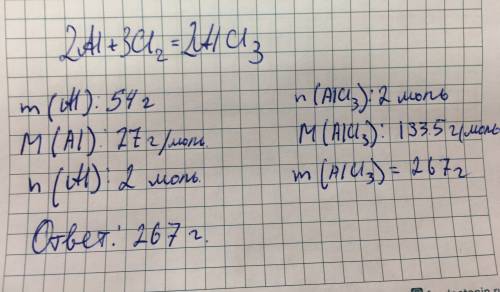 2Al+3Cl₂=2AlCl₃
m(Al): 54 г
M(Al): 27 г/моль.
n(Al): 2 моль.
n(AlCl₃): 2 моль
M(AlCl₃): 133.5 г/моль
m(AlCl₃)=267 г
Ответ: 267 г.